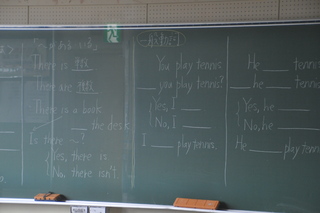 There is 単数
There are 複数
There is a book
___ the desk
Is there ~ ?
Yes, there is
No, there isn't
You play tennis
___ you play tennis?
Yes, I ___
No, I ___
I ___ play tennis.
He ___ tennis
___ he ___ tennis
Yes, he ___
No, he ___
He ___ play tennis